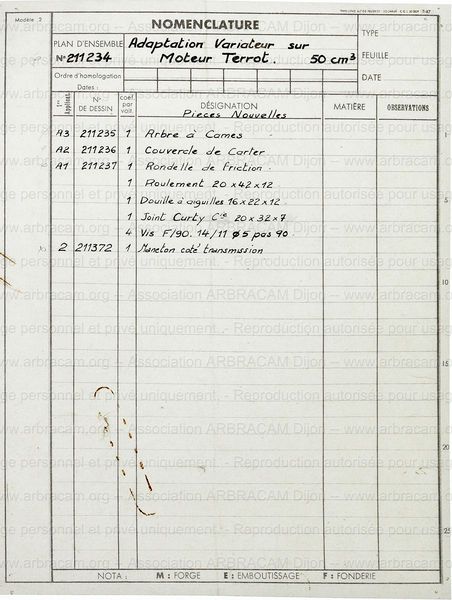 Modèle 2
NOMENCLATURE
PLAN D'ENSEMBLE
Adaptation Variateur sur
N° 211234
Moteur Terrot. 50 cm³
TYPE
FEUILLE
DATE
Ordre d'homologation
Dates :
N° DE DESSIN
coef par voit.
DÉSIGNATION
MATIÈRE
OBSERVATIONS
Pieces Nouvelles
A3 211235 1 Arbre à Cames
A2 211236 1 Couvercle de Carter
A1 211237 1 Rondelle de friction
1 Roulement 20 x 42 x 12
1 Douille à aiguilles 16 x 22 x 12
1 Joint Curty Cie 20 x 32 x 7
4 Vis F/90. 14/11 ø5 pas 90
2 211372 1 Maneton coté transmission
1
5
10
15
20
25
NOTA : M : FORGE E : EMBOUTISSAGE F : FONDERIE
www.arbracam.org – Association ARBRACAM Dijon – www.arbracam.org
usage personnel et privé uniquement. - Reproduction autorisée pour usage